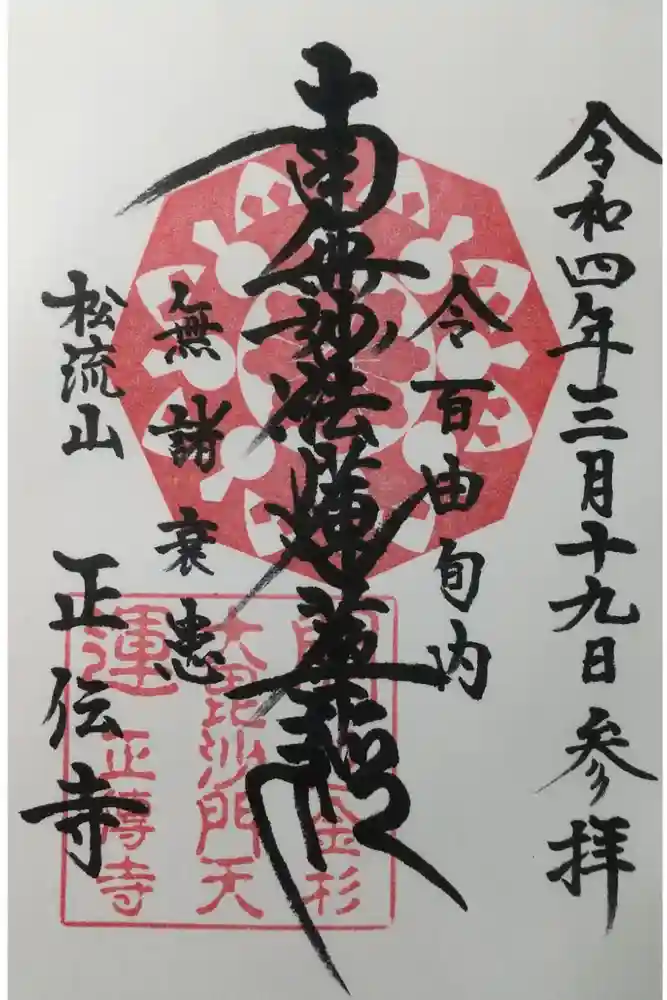 令和四年三月十九日参拝
令百由旬内
南無妙法蓮華経
無諸衰患
松流山
正伝寺
開金杉
大毘沙門天
運正傳寺